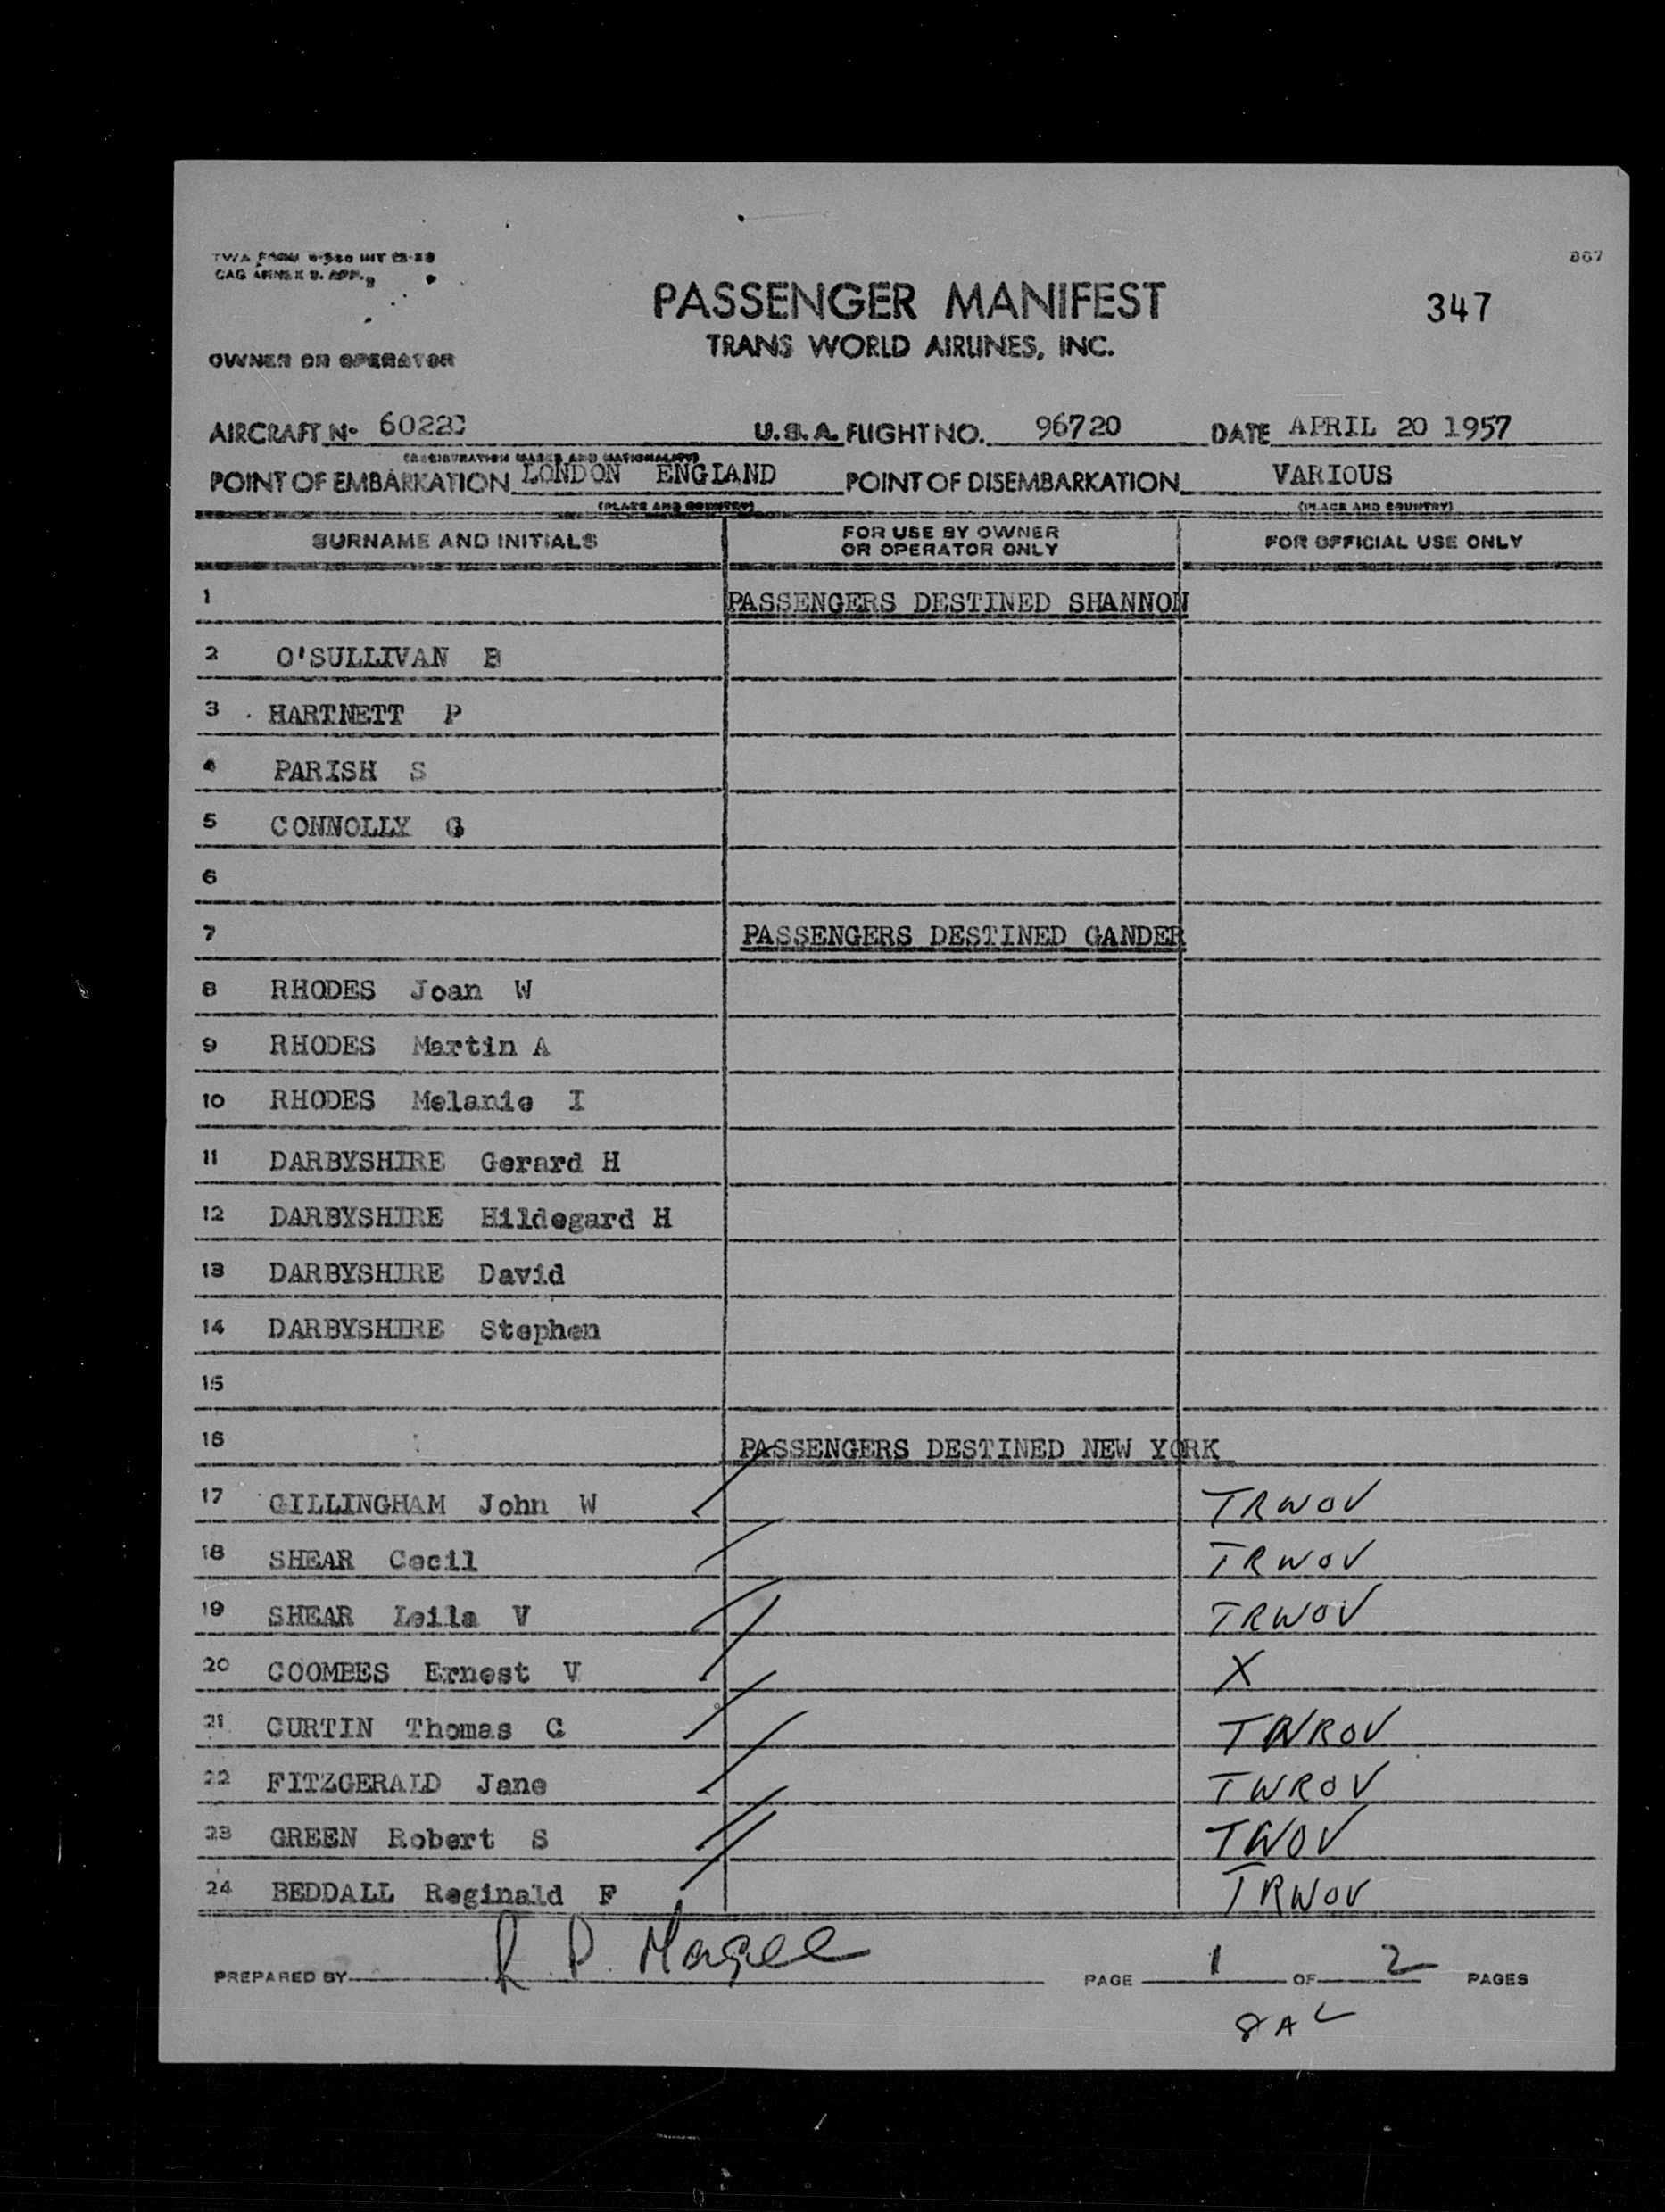 867
PASSENGER MANIFEST 347
TRANS WORLD AIRLINES, INC.
OWNER OR OPERATOR
AIRCRAFT No 6022C U.S.A. FLIGHT NO. 96720 DATE APRIL 20 1957
(REGISTRATION MARKS AND NATIONALITY)
POINT OF EMBARKATION LONDON ENGLAND POINT OF DISEMBARKATION VARIOUS
(PLACE AND COUNTRY) (PLACE AND COUNTRY)
SURNAME AND INITIALS FOR USE BY OWNER OR OPERATOR ONLY FOR OFFICIAL USE ONLY
1 PASSENGERS DESTINED SHANNON
2 O'SULLIVAN B
3 HARTNETT P
4 PARISH S
5 CONNOLLY G
6
7 PASSENGERS DESTINED GANDER
8 RHODES Joan W
9 RHODES Martin A
10 RHODES Melanie I
11 DARBYSHIRE Gerard H
12 DARBYSHIRE Hildegard H
13 DARBYSHIRE David
14 DARBYSHIRE Stephen
15
16 PASSENGERS DESTINED NEW YORK
17 GILLINGHAM John W TRWOV
18 SHEAR Cecil TRWOV
19 SHEAR Leila V TRWOV
20 COOMBES Ernest V X
21 CURTIN Thomas C TWROV
22 FITZGERALD Jane TWROV
23 GREEN Robert S TWOV
24 BEDDALL Reginald F TRWOV
PREPARED BY R P. Magee PAGE 1 OF 2 PAGES